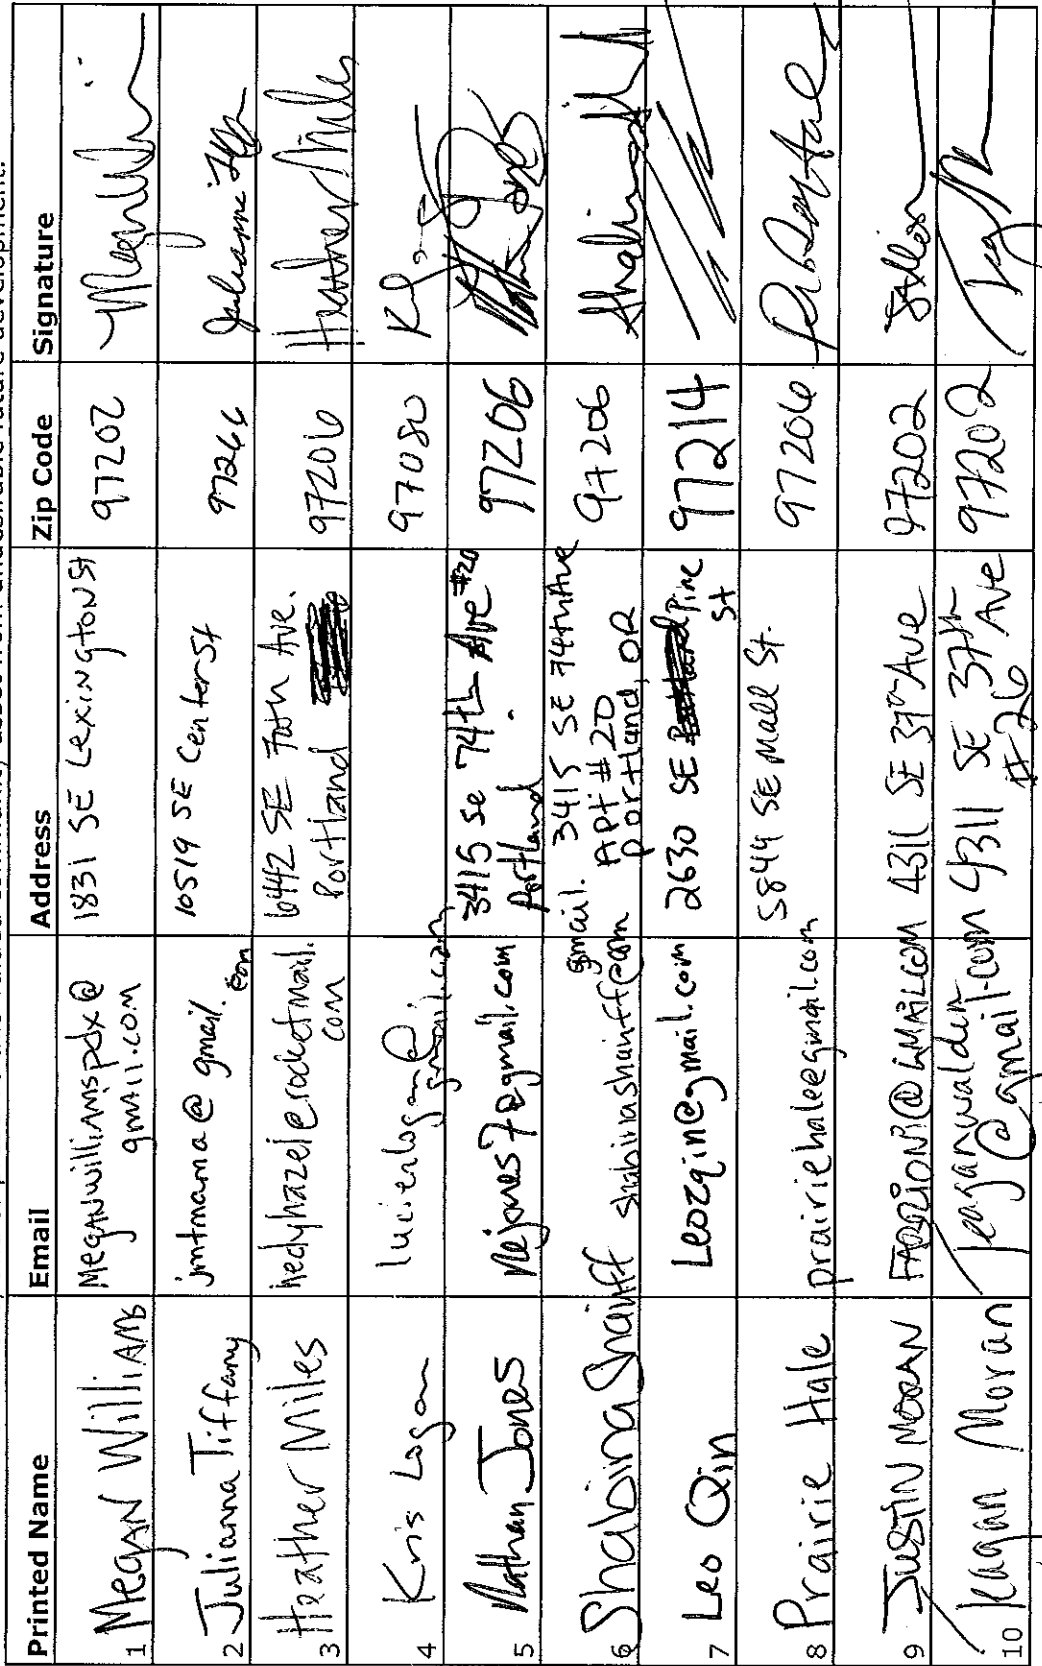 Printed Name Email Address Zip Code Signature
1 Megan Williams Meganwilliamspdx@
gmail.com 1831 SE Lexington St 97202
2 Julianna Tiffany jmtmama@gmail.com 10519 SE Center St 97266
3 Heather Miles hedyhazel@rocketmail.
com 6442 SE 70th Ave.
Portland 97206 Heather Miles
4 Kris Logan lucienlogan@
gmail.com 97080
5 Nathan Jones nejones7@gmail.com 3415 se 74th Ave #20
Portland 97206
6 Shabina Shariff shabinashariff@gmail.com 3415 SE 74th Ave
Apt #20
Portland, OR 97206
7 Leo Qin Leozqin@gmail.com 2630 SE Pine
St 97214
8 Prairie Hale prairiehale@gmail.com 5844 SE Mall St. 97206
9 Justin Moran @GMAIL.COM 4311 SE 37th Ave 97202
10 Teagan Moran teaganwalden
@gmail.com 4311 SE 37th
#26 Ave 97202